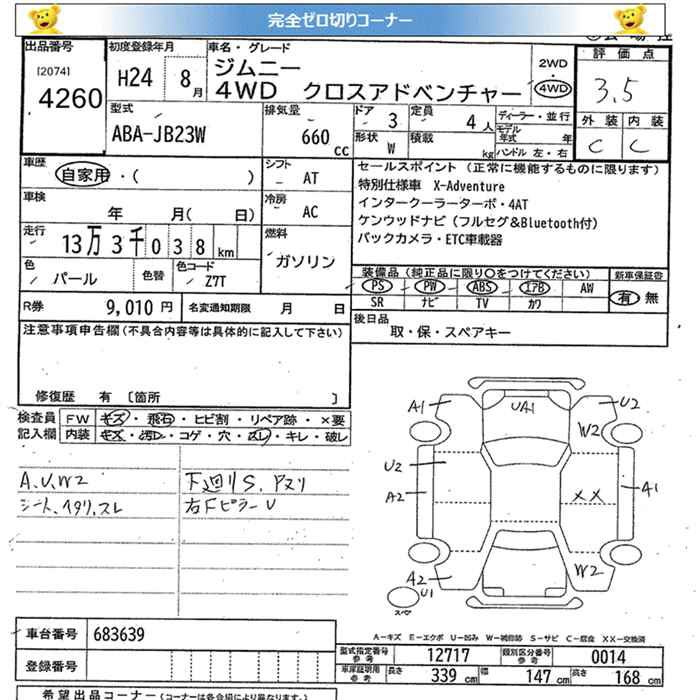 完全ゼロ切りコーナー
出品番号
[2074]
4260
初度登録年月
H24 8月
車名・グレード
ジムニー
4WD クロスアドベンチャー
2WD
・
4WD
評価点
3.5
外装 内装
C C
型式
ABA-JB23W
排気量
660 CC
ドア 3
形状 W
定員 4人
積載 kg
ディーラー・並行
モデル年式 年
ハンドル 左・右
車歴
自家用・( )
シフト
AT
車検
年 月( 日)
冷房
AC
走行
13万3千038km
燃料
ガソリン
色
パール
色替
色コード
Z7T
R券
9,010円
名変通知期限 月 日
セールスポイント (正常に機能するものに限ります)
特別仕様車 X-Adventure
インタークーラーターボ・4AT
ケンウッドナビ(フルセグ&Bluetooth付)
バックカメラ・ETC車載器
装備品(純正品に限り○をつけてください)
PS PW ABS エアB AW
SR ナビ TV カワ
新車保証書
有 無
後日品
取・保・スペアキー
注意事項申告欄(不具合内容等は具体的に記入して下さい)
修復歴 有 [箇所 ]
検査員記入欄
FW キズ・飛石・ヒビ割・リペア跡・×要
内装 キズ・汚れ・コゲ・穴・スレ・キレ・破レ
A.U.W2
シート、イタリ、スレ
下廻りS、Pヌリ
右FピラーU
A1
UA1
U2
W2
U2
A2
XX
A1
A2
U1
W2
スペア
A-キズ E-エクボ U-凹み W-補修跡 S-サビ C-腐食 XX-交換済
車台番号 683639
登録番号
型式指定番号 参考 12717
類別区分番号 参考 0014
車庫証明用 参考 長さ 339 cm 幅 147 cm 高さ 168 cm
希望出品コーナー(コーナーは各会場により異なります)